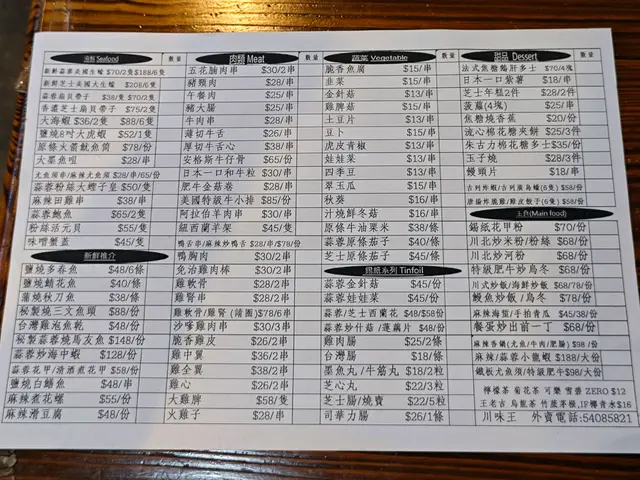 海鮮 Seafood 數量
新鮮蒜蓉美國生蠔 $70/2隻$188/6隻
新鮮芝士美國大生蠔 $208/6隻
蒜蓉扇貝帶子 $38/隻 $70/2隻
香濃芝士扇貝帶子 $75/2隻
大海蝦 $36/2隻 $88/6隻
鹽燒8吋大虎蝦 $52/1隻
原條火箭魷魚筒 $78/份
大墨魚咀 $28/串
尤魚須串/麻辣尤魚須 $28/串
蒜蓉粉絲大蟶子皇 $50/隻
麻辣田雞串 $38/串
蒜蓉鮑魚 $65/2隻
粉絲活元貝 $55/隻
味噌蟹蓋 $45/隻
新鮮推介
鹽燒多春魚 $48/6條
鹽燒鯖花魚 $40/條
蒲燒秋刀魚 $38/條
秘製燒三文魚頭 $88/份
台灣雞泡魚乾 $48/份
秘製蒜蓉燒馬友魚 $148/份
蒜蓉炒海中蝦 $128/份
蒜蓉花甲/清酒煮花甲 $58/份
鹽燒白鱔魚 $48/串
麻辣煮花螺 $55/份
麻辣滑豆腐 $48/份
肉類 Meat 數量
五花腩肉串 $30/2串
豬頸肉 $28/串
午餐肉 $25/串
豬大腸 $25/串
牛肉串 $28/串
薄切牛舌 $26/串
厚切牛舌心 $38/串
安格斯牛仔骨 $65/份
日本一口和牛粒 $30/串
肥牛金菇卷 $28/串
美國特級牛小排 $85/份
阿拉伯羊肉串 $30/串
紐西蘭羊架 $45/隻
鴨舌串/麻辣炒鴨舌 $28/串/$78/份
鴨胸肉 $30/2串
免治雞肉棒 $30/2串
雞軟骨 $28/2串
雞腎串 $28/2串
雞軟骨/雞腎（靖圍)$78/6串
沙嗲雞肉串 $30/3串
脆香雞皮 $26/2串
雞中翼 $36/2串
雞全翼 $38/2串
雞心 $26/2串
大雞脾 $58/隻
火雞子 $28/串
蔬菜 Vegetable 數量
脆香魚腐 $15/串
韭菜 $15/串
金針菇 $13/串
雞脾菇 $15/串
土豆片 $13/串
豆卜 $15/串
虎皮青椒 $13/串
娃娃菜 $13/串
四季豆 $13/串
翠玉瓜 $15/串
秋葵 $16/串
汁燒鮮冬菇 $16/串
原條牛油粟米 $38/條
蒜蓉原條茄子 $40/條
芝士原條茄子 $45/條
錫紙系列 Tinfoil
蒜蓉金針菇 $45/份
蒜蓉娃娃菜 $45/份
蒜蓉/芝士西蘭花 $48/$58份
蒜蓉炒什菇/蓮藕片 $48/份
雞肉腸 $25/2條
台灣腸 $18/條
墨魚丸/牛筋丸 $18/2粒
芝心丸 $22/3粒
芝士腸/燒賣 $22/5粒
司華力腸 $26/1條
甜品 Dessert 數量
法式焦糖鵝肝多士 $70/4塊
日本一口紫薯 $18/串
芝士年糕2件 $28/2件
菠蘿(4塊) $25/串
焦糖燒香蕉 $20/份
流心棉花糖夾餅 $25/3件
朱古力棉花糖多士$35/份
玉子燒 $28/3件
饅頭片 $18/串
古列炸蝦/古列廣島蠔(6隻) $58/份
唐揚炸脆雞/雞皮餃子(6隻) $58/份
主食(Main food)
錫紙花甲粉 $70/份
川北炒米粉/粉絲 $68/份
川北炒河粉 $68/份
特級肥牛炒烏冬 $68/份
川式炒飯/海鮮炒飯 $68/78/份
鰻魚炒飯/烏冬 $78/份
麻辣海蜇/手拍青瓜 $45/38/份
餐蛋炒出前一丁 $68/份
麻辣香鍋(尤魚/牛肉/肥腸) $98 /份
麻辣/蒜蓉小龍蝦 $188/大份
鐵板尤魚須/特級肥牛$98/大份
檸檬茶 菊花茶 可樂 雪碧 ZERO $12
王老吉 烏龍茶 竹蔗茅根,IF椰青水$16
川味王 外賣電話:54085821